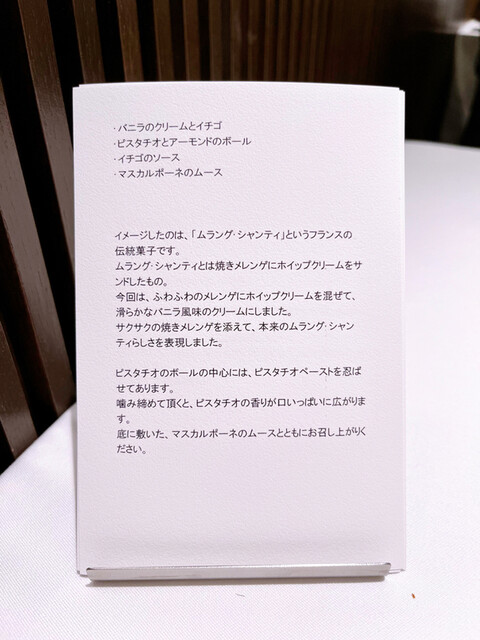 ・バニラのクリームとイチゴ
・ピスタチオとアーモンドのボール
・イチゴのソース
・マスカルポーネのムース
イメージしたのは、「ムラング・シャンティ」というフランスの
伝統菓子です。
ムラング・シャンティとは焼きメレンゲにホイップクリームをサ
ンドしたもの。
今回は、ふわふわのメレンゲにホイップクリームを混ぜて、
滑らかなバニラ風味のクリームにしました。
サクサクの焼きメレンゲを添えて、本来のムラング・シャン
ティらしさを表現しました。
ピスタチオのボールの中心には、ピスタチオペーストを忍ば
せてあります。
噛み締めて頂くと、ピスタチオの香りが口いっぱいに広がりま
す。
底に敷いた、マスカルポーネのムースとともにお召し上がりく
ださい。